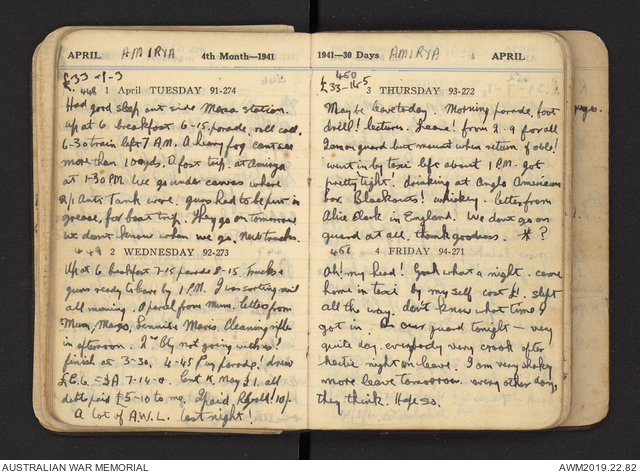 APRIL AMIRYA 4th Month—1941
£33-9-3
448 1 April TUESDAY 91-274
Had good sleep out side Mena station.
up at 6 breakfast 6-15 parade, roll call.
6-30 train left 7 A.M. A heavy fog cant see
more than 10 yds. A fast trip. at Amirya
at 1-30 P.M. We go under canvas where
2/1 Anti Tank were. guns had to be put in
grease, for boat trip. They go on tomorrow
we dont know when we go. New trucks.
449 2 WEDNESDAY 92-273
Up at 6 breakfast 7-15 parade 8-15. Trucks &
guns ready to leave by 1 P.M. I was sorting mail
all morning. A parcel from Mum. letters from
Mum, Cleaning rifle
in afternoon. 2nd Bty not going with us!
finish at 3-30. 4-45 Pay parade! drew
£E.6. = £A 7-14-0. Sent K. May £1. all
debts paid £5-10 to me. I paid 10/-
A lot of A.W.L. last night!
1941—30 Days AMIRYA APRIL
450
£33-14-5 3 THURSDAY 93-272
May be leave today. Morning parade, foot
drill! lectures. Leave! from 2-9 for all
I am on guard but mount when return if able!
went in by taxi left about 1 P.M. got
pretty tight! drinking at Anglo American
bar. Blackouts! whiskey. letter from
Alice Clark in England. We dont go on
guard at all, thank goodness. * ?
451 4 FRIDAY 94-271
Oh! my head! Gosh what a night. came
home in taxi by my self cost £1. slept
all the way. don't know what time I
got in. On our guard tonight — very
quite day. everybody very crook after
hectic night on leave. I am very shaky
more leave tomorrow. every other day,
they think. Hope so.
AUSTRALIAN WAR MEMORIAL AWM2019.22.82